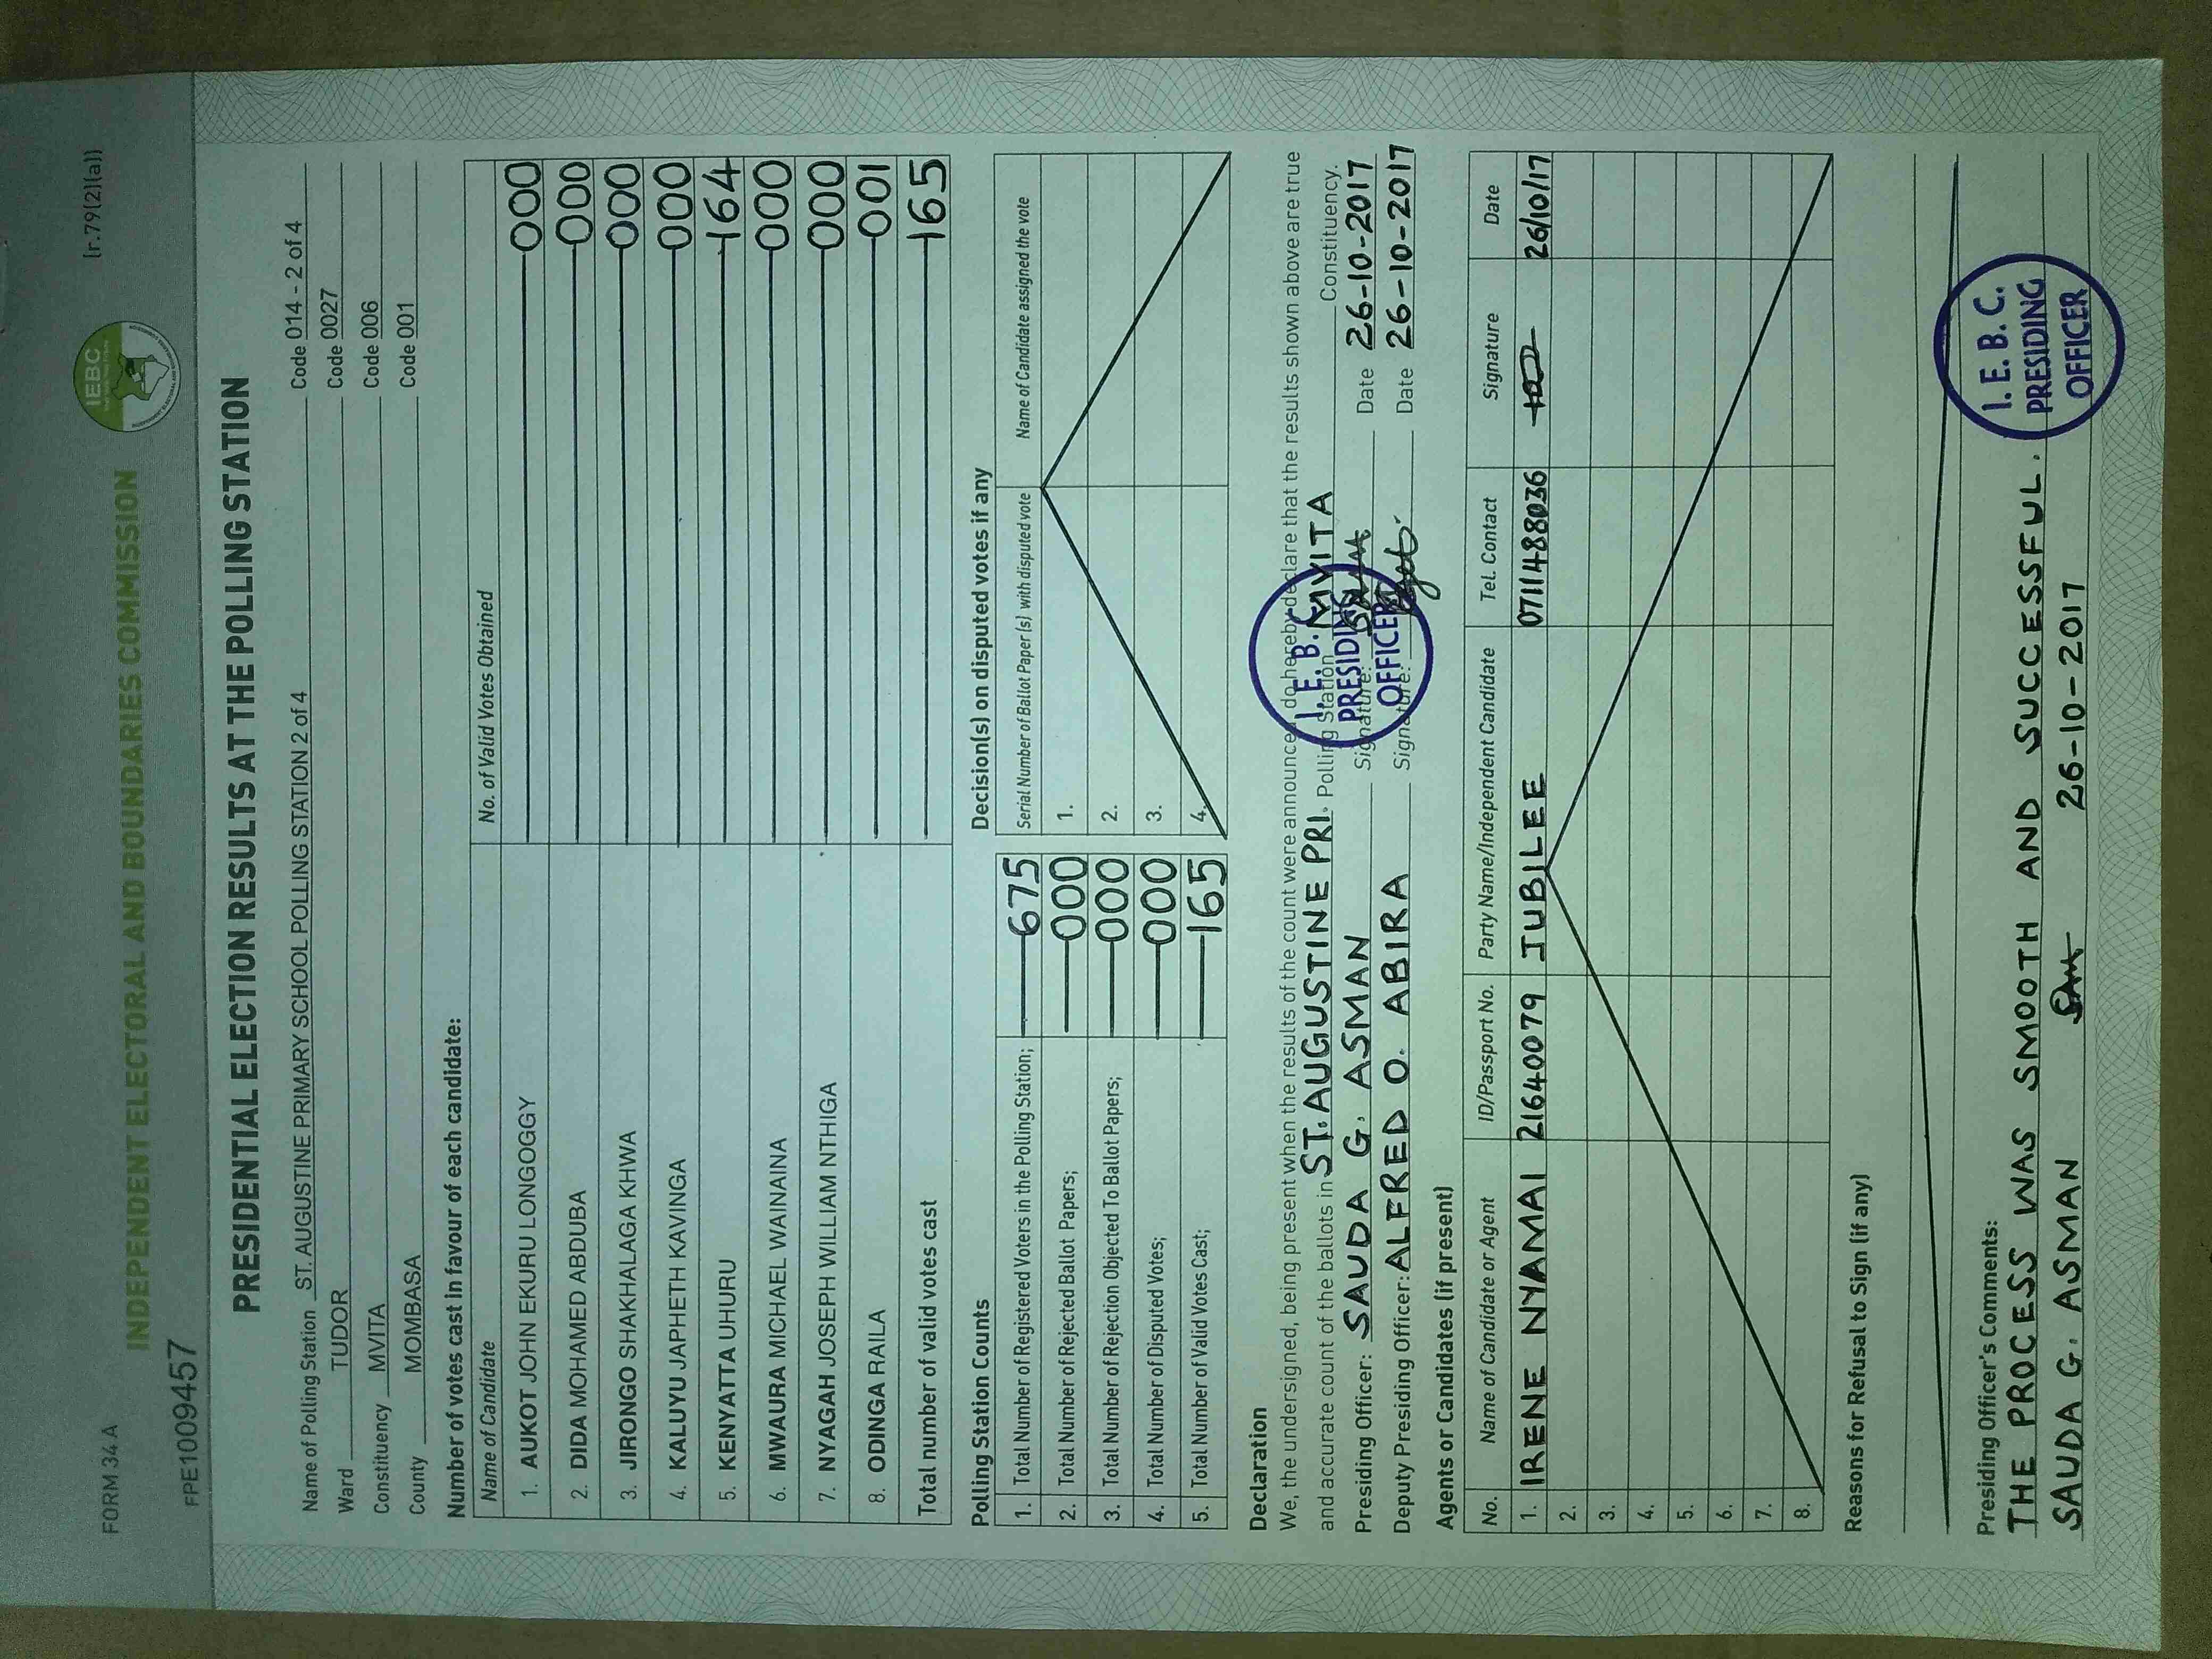 FORM 34 A
[r.79(2)(a)]
IEBC
INDEPENDENT ELECTORAL AND BOUNDARIES COMMISSION
FPE1009457
PRESIDENTIAL ELECTION RESULTS AT THE POLLING STATION
Name of Polling Station ST. AUGUSTINE PRIMARY SCHOOL POLLING STATION 2 of 4 Code 014 - 2 of 4
Ward TUDOR Code 0027
Constituency MVITA Code 006
County MOMBASA Code 001
Number of votes cast in favour of each candidate:
Name of Candidate No. of Valid Votes Obtained
1. AUKOT JOHN EKURU LONGOGGY 000
2. DIDA MOHAMED ABDUBA 000
3. JIRONGO SHAKHALAGA KHWA 000
4. KALUYU JAPHETH KAVINGA 000
5. KENYATTA UHURU 164
6. MWAURA MICHAEL WAINAINA 000
7. NYAGAH JOSEPH WILLIAM NTHIGA 000
8. ODINGA RAILA 001
Total number of valid votes cast 165
Polling Station Counts
1. Total Number of Registered Voters in the Polling Station; 675
2. Total Number of Rejected Ballot Papers; 000
3. Total Number of Rejection Objected To Ballot Papers; 000
4. Total Number of Disputed Votes; 000
5. Total Number of Valid Votes Cast; 165
Decision(s) on disputed votes if any
Serial Number of Ballot Paper (s) with disputed vote Name of Candidate assigned the vote
1.
2.
3.
4.
Declaration
We, the undersigned, being present when the results of the count were announced, do hereby declare that the results shown above are true
and accurate count of the ballots in ST. AUGUSTINE PRI. Polling Station MVITA Constituency.
Presiding Officer: SAUDA G. ASMAN Signature: Date 26-10-2017
Deputy Presiding Officer: ALFRED O. ABIRA Signature: Date 26-10-2017
I. E. B. C.
PRESIDING
OFFICER
Agents or Candidates (if present)
No. Name of Candidate or Agent ID/Passport No. Party Name/Independent Candidate Tel. Contact Signature Date
1. IRENE NYAMAI 21640079 JUBILEE 0711488036 26/10/17
2.
3.
4.
5.
6.
7.
8.
Reasons for Refusal to Sign (if any)
Presiding Officer's Comments:
THE PROCESS WAS SMOOTH AND SUCCESSFUL.
SAUDA G. ASMAN 26-10-2017
I. E. B. C.
PRESIDING
OFFICER